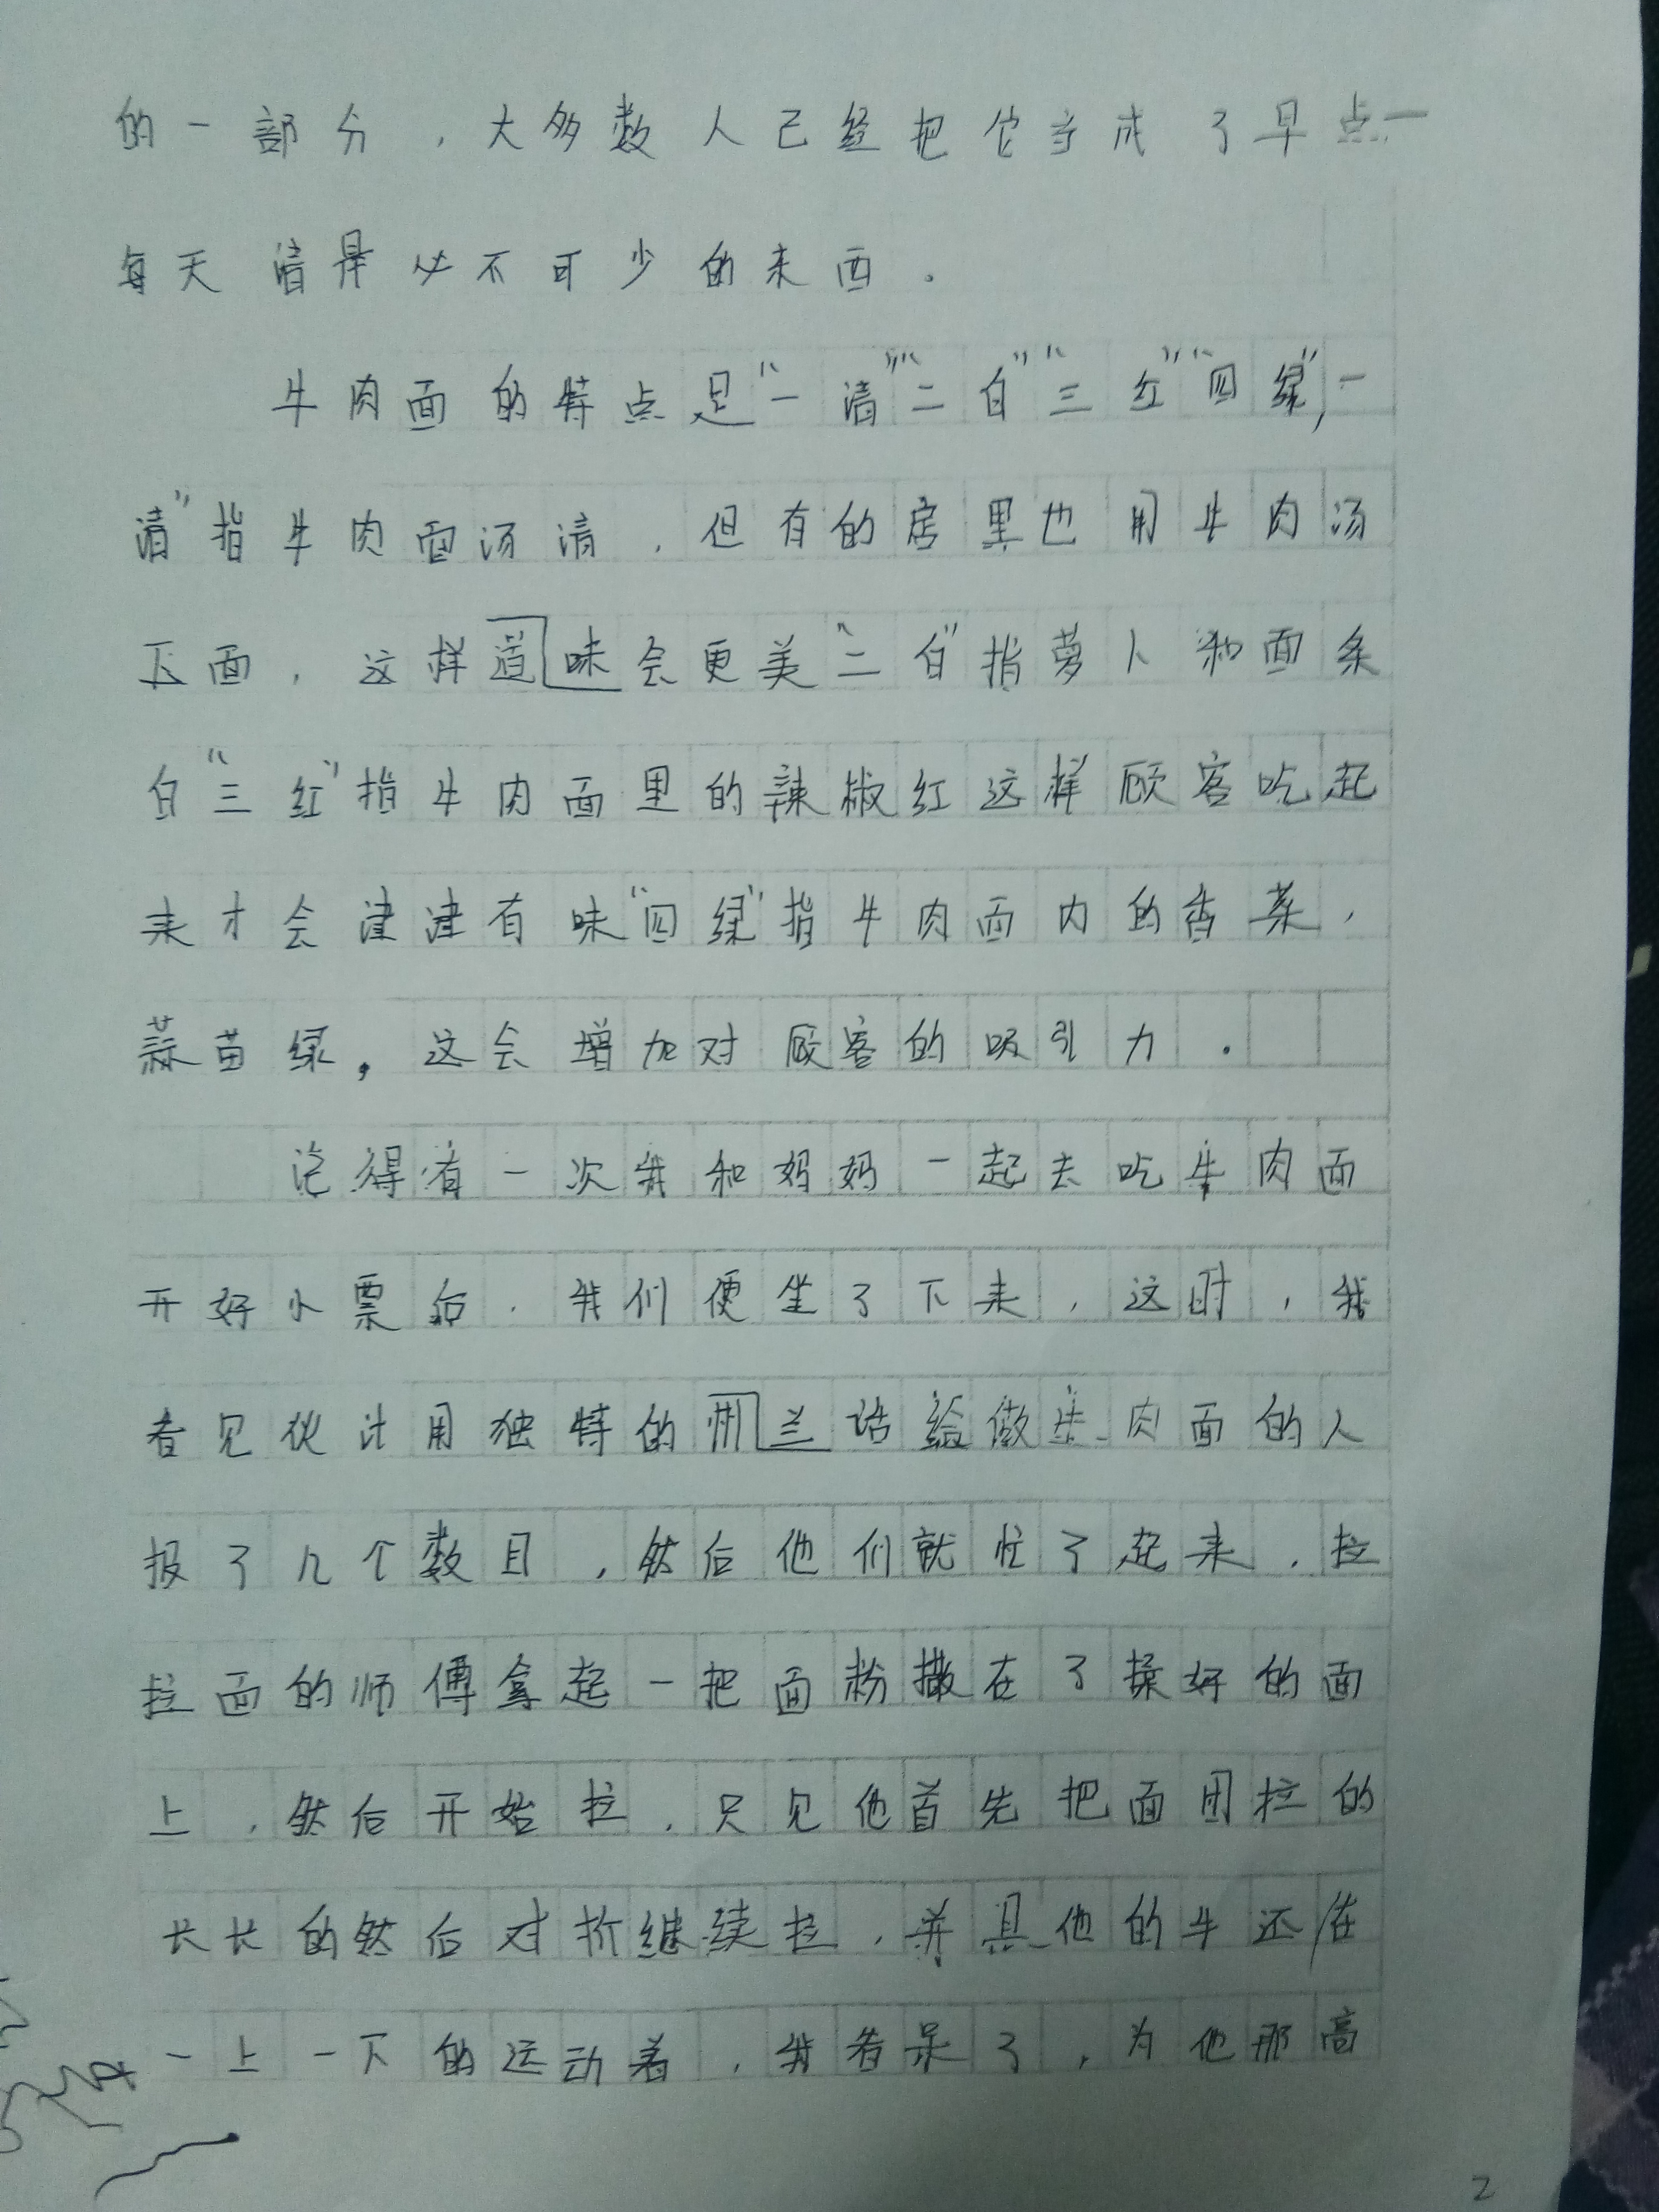 的一部分，大多数人已经把它当成了早点一
每天清晨必不可少的东西。
牛肉面的特点是“一清”“二白”“三红”“四绿”，一
清”指牛肉面汤清，但有的店里也用牛肉汤
下面，这样道味会更美“二白”指萝卜和面条
白“三红”指牛肉面里的辣椒红这样顾客吃起
来才会津津有味“四绿”指牛肉面内的香菜，
蒜苗绿，这会增加对顾客的吸引力。
记得有一次我和妈妈一起去吃牛肉面
开好小票后，我们便坐了下来，这时，我
看见伙计用独特的州兰话给做牛肉面的人
报了几个数目，然后他们就忙了起来，拉
拉面的师傅拿起一把面粉撒在了揉好的面
上，然后开始拉，只见他首先把面团拉的
长长的然后对折继续拉，并且他的手还在
一上一下的运动着，我看呆了，为他那高
2